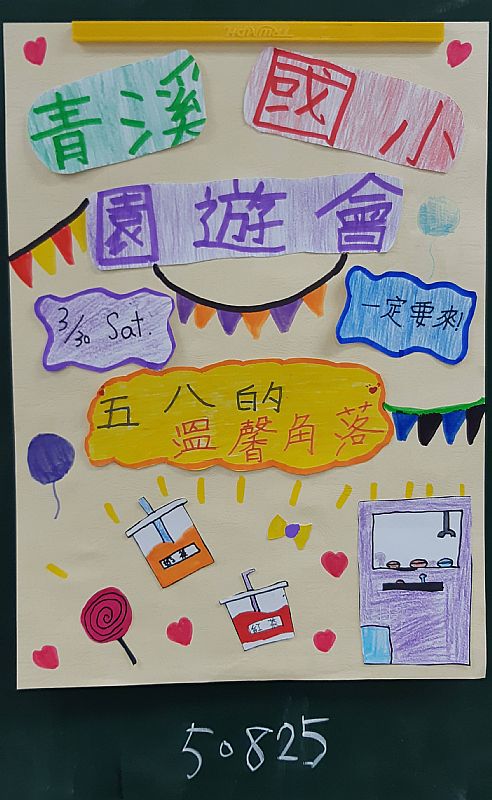 青溪 國小
園遊會
3/30 Sat.
一定要來!
五八的
溫馨角落
紅茶
50825